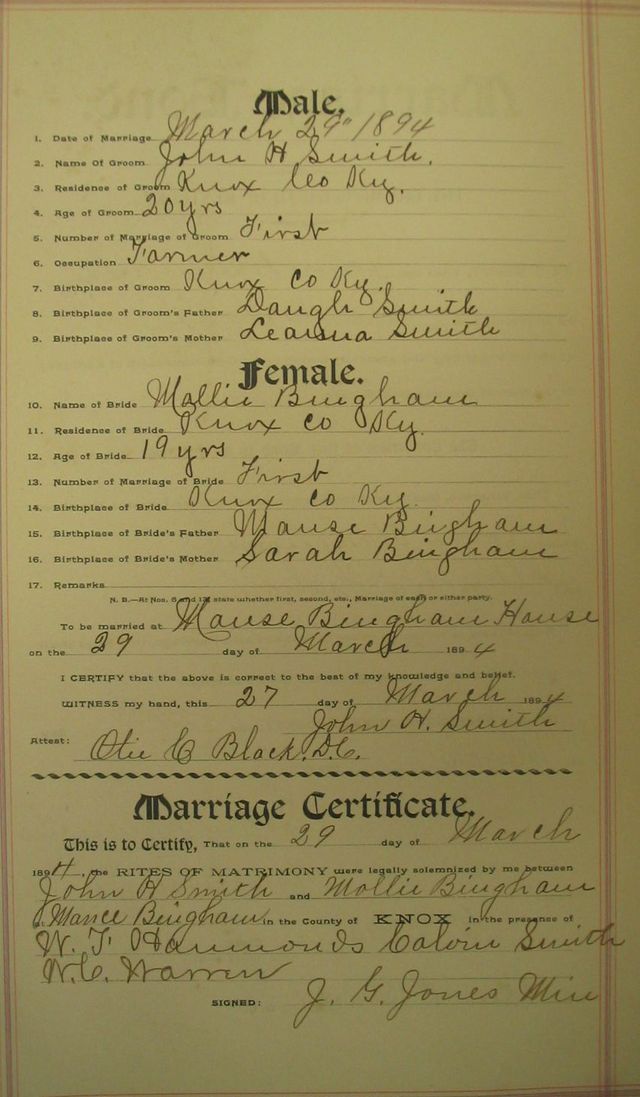 Male.
1. Date of Marriage March 29" 1894
2. Name Of Groom John H Smith.
3. Residence of Groom Knox Co Ky.
4. Age of Groom 20 yrs
5. Number of Marriage of Groom First
6. Occupation Farmer
7. Birthplace of Groom Knox Co Ky.
8. Birthplace of Groom's Father Daugh Smith
9. Birthplace of Groom's Mother Leanna Smith
Female.
10. Name of Bride Mollie Bingham
11. Residence of Bride Knox Co Ky.
12. Age of Bride 19 yrs
13. Number of Marriage of Bride First
14. Birthplace of Bride Knox Co Ky
15. Birthplace of Bride's Father Manse Bingham
16. Birthplace of Bride's Mother Sarah Bingham
17. Remarks
N. B.—At Nos. 5 and 13, state whether first, second, etc., Marriage of each or either party.
To be married at Manse Bingham House
on the 29 day of March 1894
I CERTIFY that the above is correct to the best of my knowledge and belief.
WITNESS my hand, this 27 day of March 1894
John H. Smith
Attest: Otie C Black. D.C.
Marriage Certificate.
This is to Certify, That on the 29 day of March
1894, the RITES OF MATRIMONY were legally solemnized by me between
John H Smith and Mollie Bingham
at Mance Bingham in the County of KNOX in the presence of
W. T. Hammonds Calvin Smith
W.C. Warren
SIGNED: J. G. Jones Min